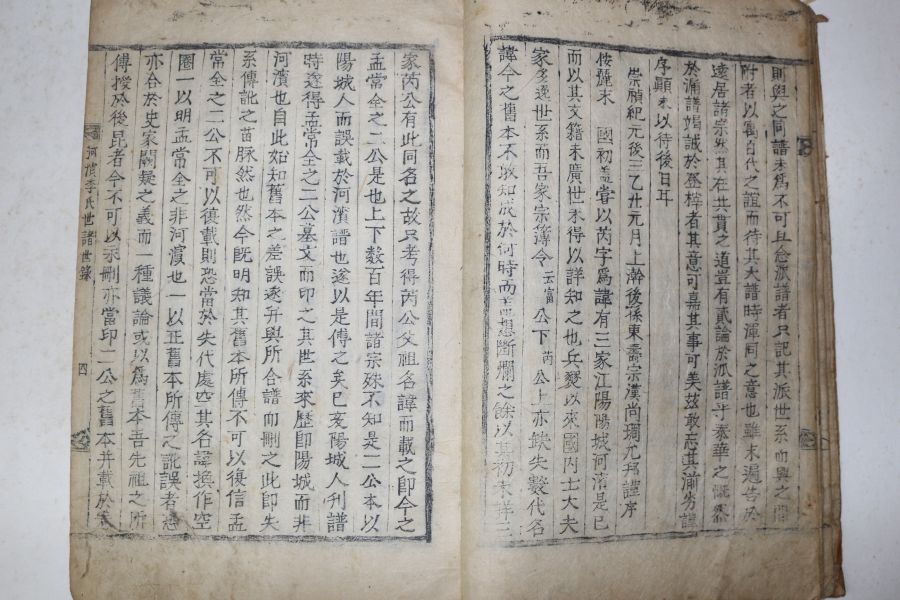 則與之同譜未爲不可且念派譜者只記其派世系而興之
附者以寓百代之誼而待其大譜時渾同之意也雖未遍告於
遠居諸宗然其在共貫之道豈有貳論於派譜乎泰華之慨然
於淵譜竭誠於登梓者其意可嘉其事可美玆敢忘其淵劣謹
序顚末以待後日耳
崇禎紀元後三乙丑元月上澣後孫東壽宗漢尚珚允瑀謹序
麗末國初盖嘗以芮字爲諱有三家江陽陽城河濱是已
而以其文籍未廣世未得以詳知之也兵燹以來國內士大夫
家多逸世系而吾家宗簿令云富公下芮公上亦缺失數代名
諱今之舊本不敢知成於何時而斷爛之餘以其初未詳三
家芮公有此同名之故只考得芮公父祖名諱而載之卽今之
孟常全之二公是也上下数百年間諸宗殊不知是二公本以
陽城人而誤載於河濱譜也遂以是傳之矣已亥陽城人刊譜
時遂得孟常全之二公墓文而印之其世系來歷卽陽城而非
河濱也自此始知舊本之差誤逐幷與所合譜而刪之此卽失
系傳訛之苗脉然也然今既明知其舊本所傳不可以復信孟
常全之二公不可以復載則恐當於失代處空其名諱換作空
圈一以明孟常全之非河濱也一以正舊本所傳之訛誤者
亦合於史家闕疑之義而一種議論或以爲舊本吾先祖之所
傳授於後昆者今不可以永刪亦當印二公之舊本幷載於
河濱李氏世譜世錄
四